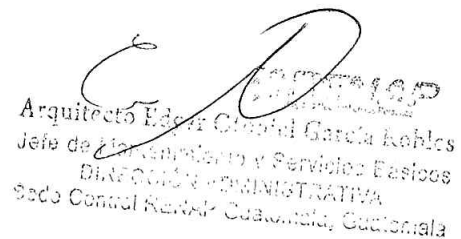 RENAP
Arquitecto Edgar Gabriel García Robles
Jefe de Mantenimiento y Servicios Básicos
DIRECCIÓN ADMINISTRATIVA
Sede Central RENAP Guatemala, Guatemala